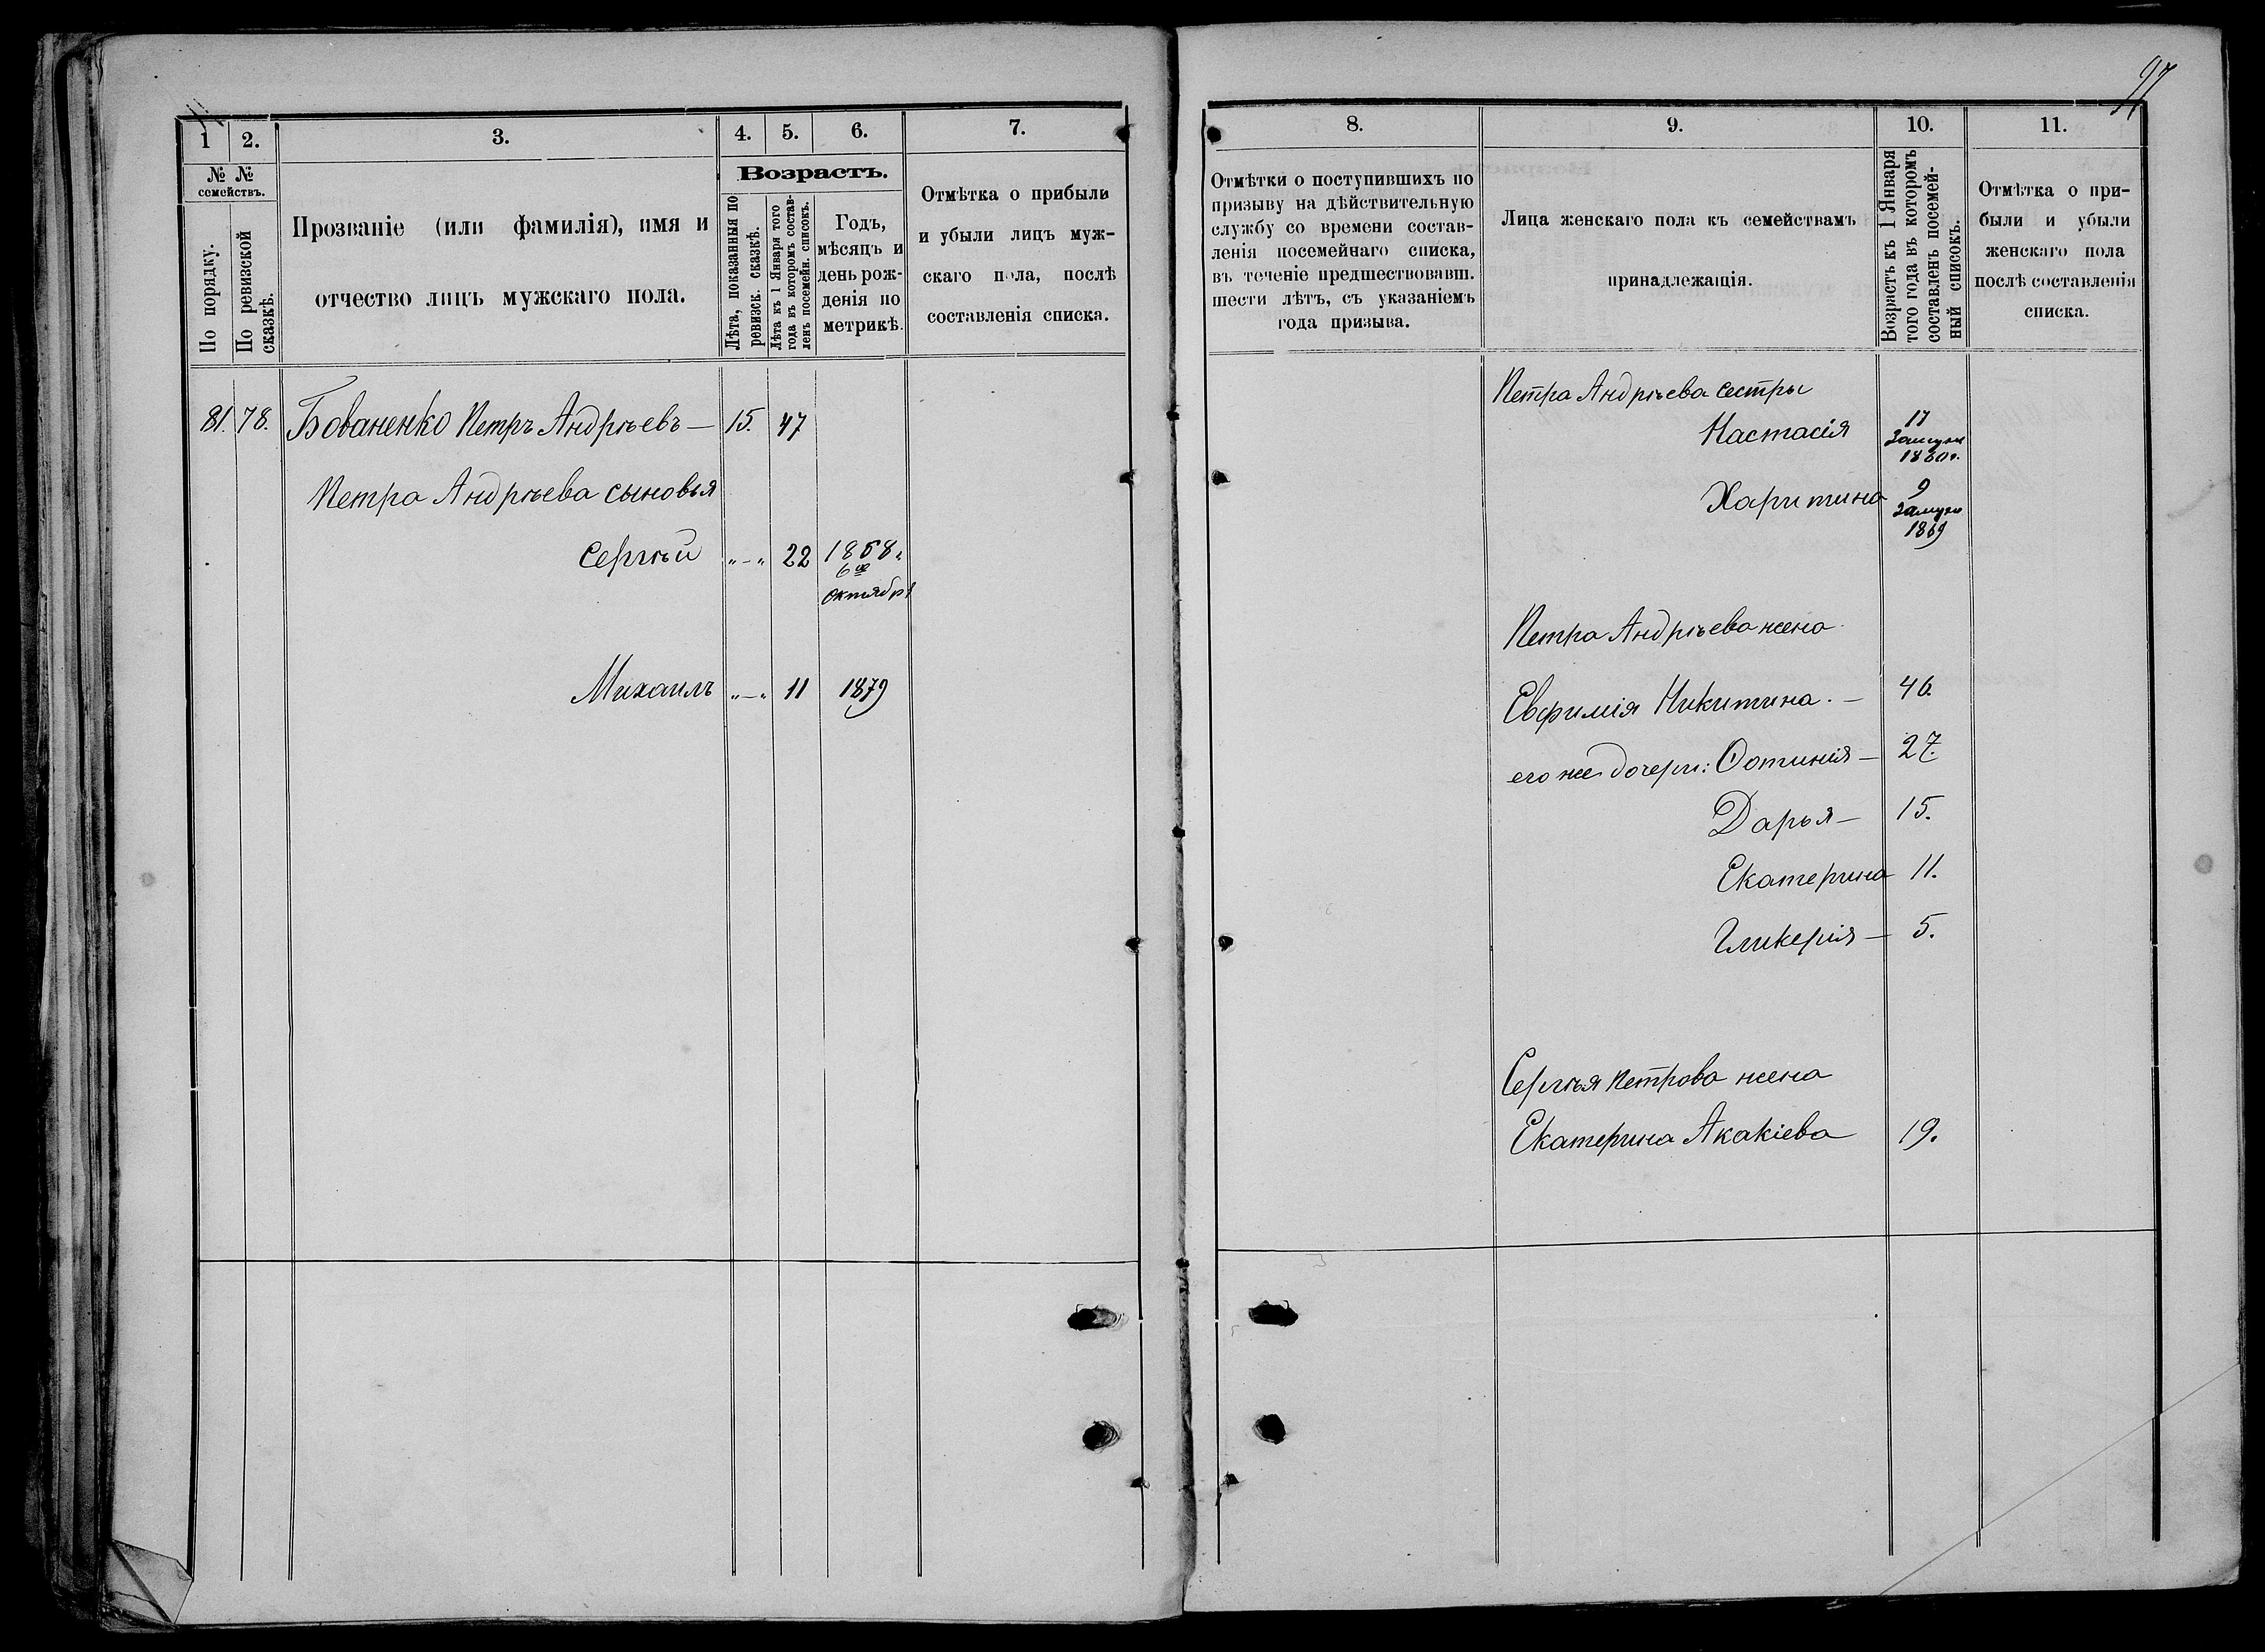 97
1
2.
3.
4.
5.
6.
7.
№ №
семействъ.
По порядку.
По ревизской
сказкѣ.
Прозваніе (или фамилія), имя и
отчество лицъ мужскаго пола.
Возрастъ.
Лѣта, показанныя по
ревизск. сказкѣ.
Лѣта къ 1 Января того
года въ которомъ состав-
ленъ посемейн. списокъ.
Годъ,
мѣсяцъ и
день рож-
денія по
метрикѣ.
Отмѣтка о прибыли
и убыли лицъ муж-
скаго пола, послѣ
составленія списка.
81. 78. Бованенко Петръ Андрѣевъ — 15. 47
Петра Андрѣева сыновья
Сергѣй „—„ 22 1858.
6го
октября
Михаилъ „—„ 11 1879
8.
9.
10.
11.
Отмѣтки о поступившихъ по
призыву на дѣйствительную
службу со времени состав-
ленія посемейнаго списка,
въ теченіе предшествовавш.
шести лѣтъ, съ указаніемъ
года призыва.
Лица женскаго пола къ семействамъ
принадлежащія.
Возрастъ къ 1 Января
того года въ которомъ
составленъ посемей-
ный списокъ.
Отмѣтка о при-
были и убыли
женскаго пола
послѣ составленія
списка.
Петра Андрѣева сестры
Настасія 17
замуж
1860г.
Харитина 9
замуж
1869
Петра Андрѣева жена
Евфимія Никитина. — 46.
его же дочери: Фотинія — 27.
Дарья — 15.
Екатерина 11.
Гликерія — 5.
Сергѣя Петрова жена
Екатерина Акакіева 19.